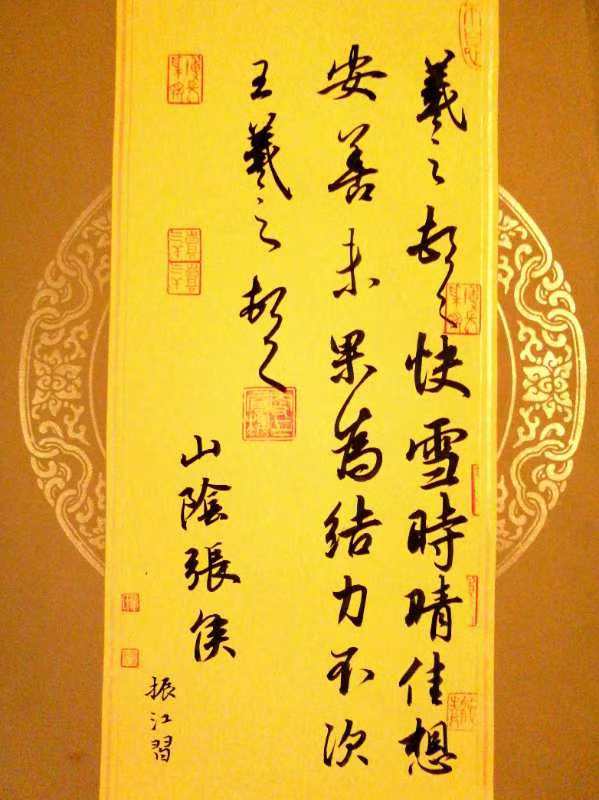 羲之頓首快雪時晴佳想
安善未果為結力不次
王羲之頓首
山陰張侯
振江習